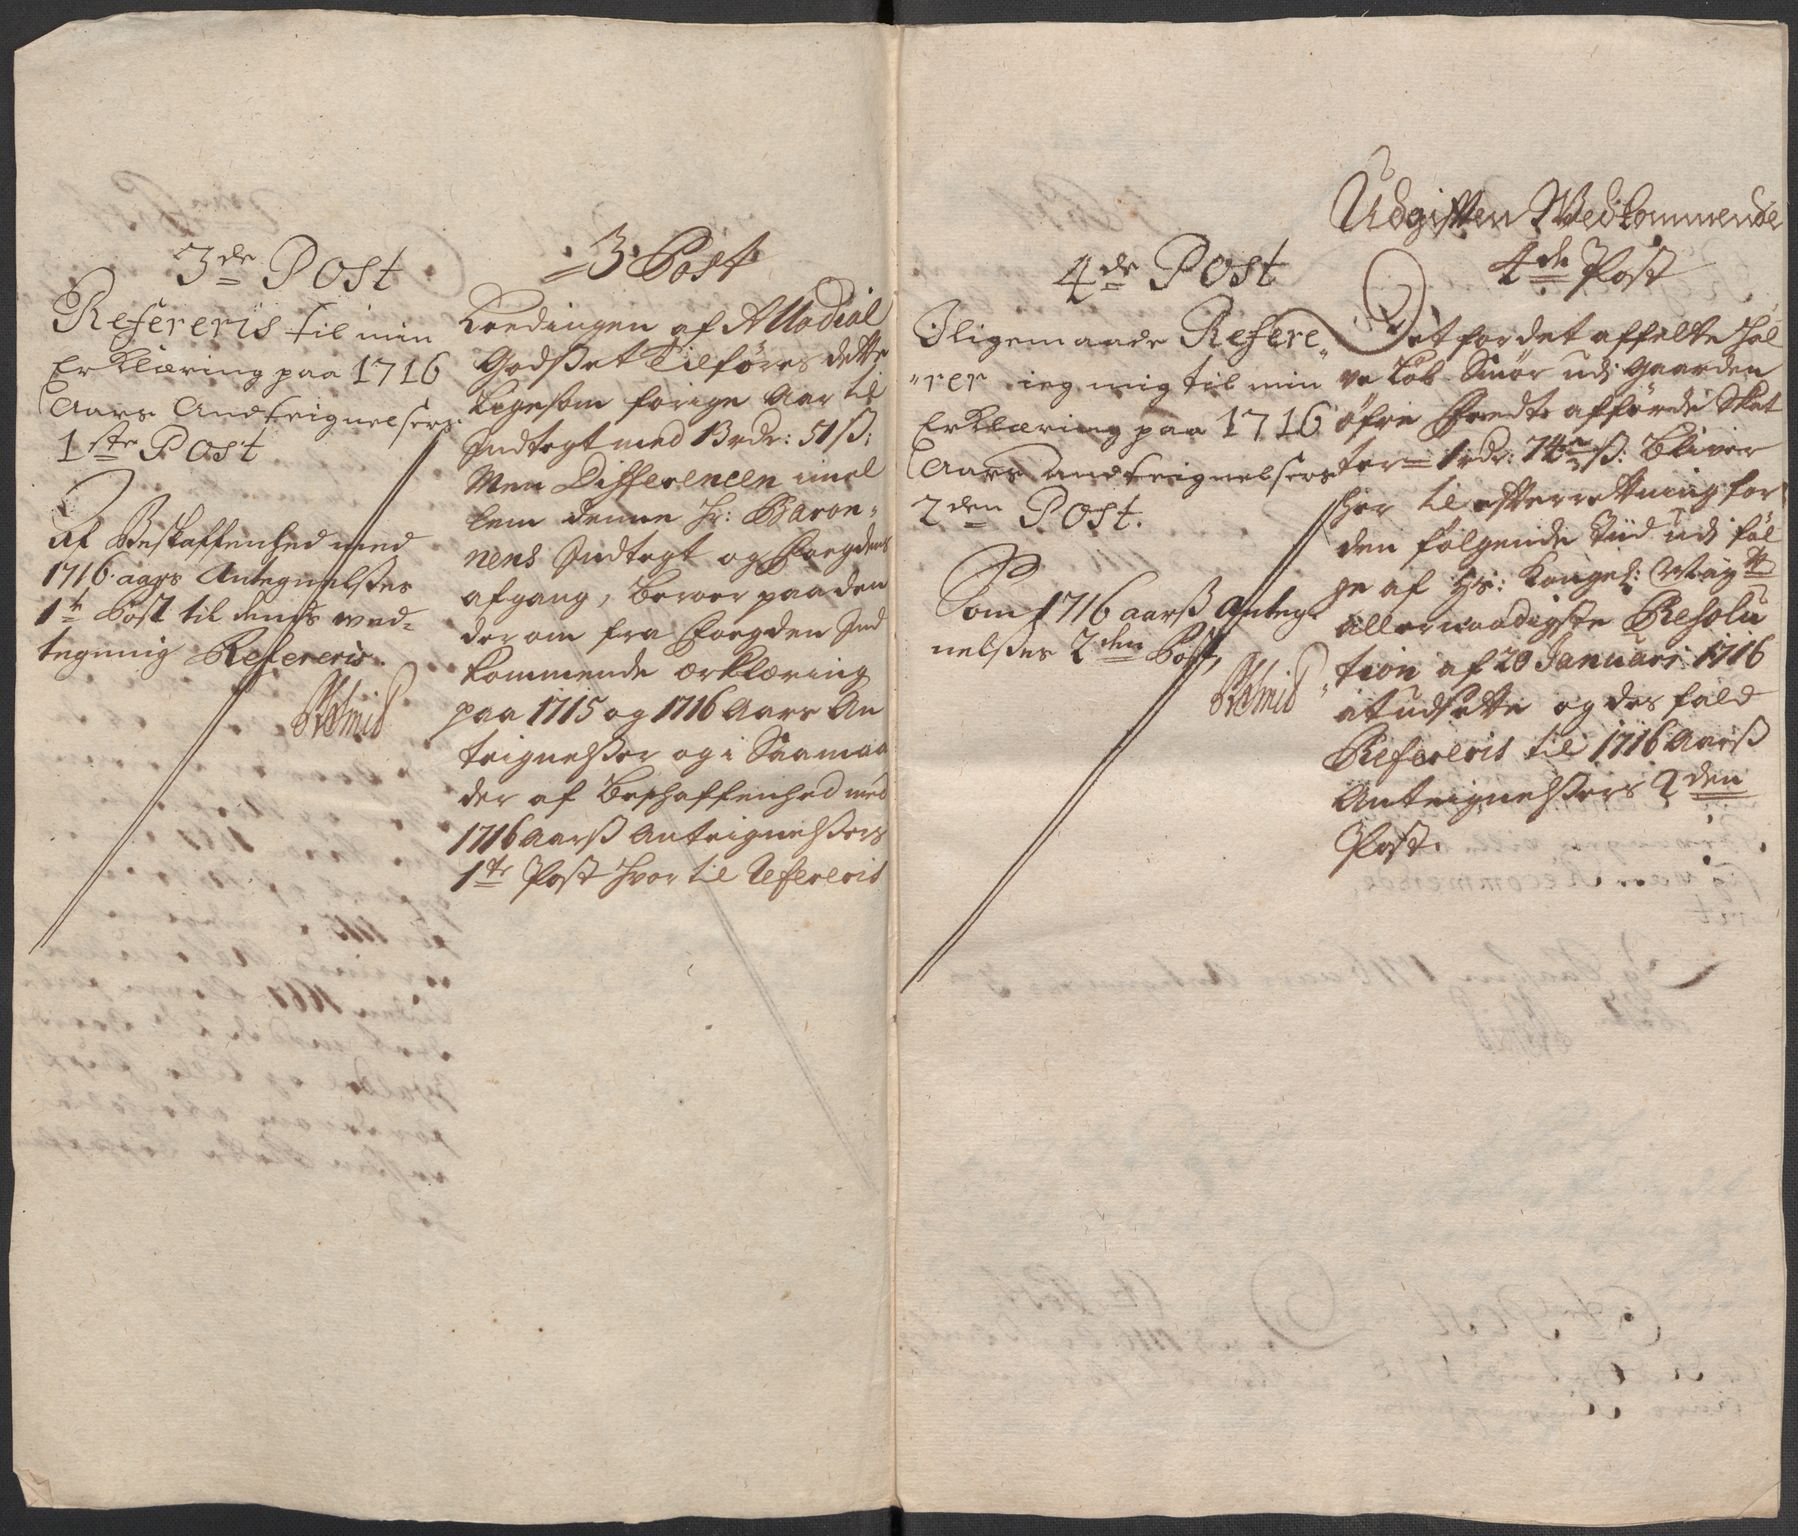 3de Post
Refereris til min
Erklæring paa 1716
Aars Andteignelsers
1ste Post
Af Beskaffenhed med
1716 aars Antegnelsses
1te Post til dends ved-
tegning Refereris.
Schmid
3 Post
Leedingen af Allodial
Godsset Tilføres dette
Ligesom forige Aar til
Indtegt med 13 rdr: 51 ß:
Men Differencen imel
lem denne Hr: Baron-
nens Indtegt og Foegdens
afgang, beroer paa den
derom fra Foegden Ind
kommende erklæring
paa 1715 og 1716 Aars An
teignelsser og i Saamaa
der af beschaffenhed med
1716 Aarß Anteignelssers
1te Post hvor til Refereris
4de Post
Iligemaade Refere-
rer ieg mig til min
Erklæring paa 1716
Aars Andteignelsers
2den Post.
Som 1716 aarß Anteg-
nelsses 2den Post,
Schmid
Udgiften Vedkommende
4de Post
Det for det affelte hal
ve Løb Smør udj Gaarden
øfre afførde Skat
ter 1 rdr: 74 ß: bliver
her til efterretning for
den følgende Tiid udj føl
ge af Hs: Kongel: May:ts
allernaadigste Resolu
tion af 20 Januarj 1716
at udsette og des fald
Refereris til 1716 Aarß
Anteignelssers 2den
Post.